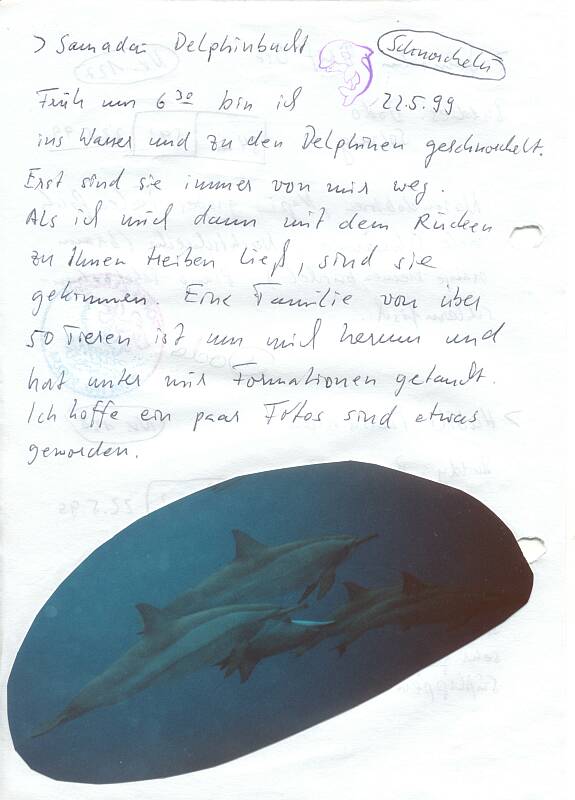 > Samadai Delphinbucht Schnorcheln
Früh um 6 30 bin ich 22.5.99
ins Wasser und zu den Delphinen geschnorchelt.
Erst sind sie immer von mir weg.
Als ich mich dann mit dem Rücken
zu Ihnen treiben ließ, sind sie
gekommen. Eine Familie von über
50 Tieren ist um mich herum und
hat unter mir Formationen getaucht.
Ich hoffe ein paar Fotos sind etwas
geworden.